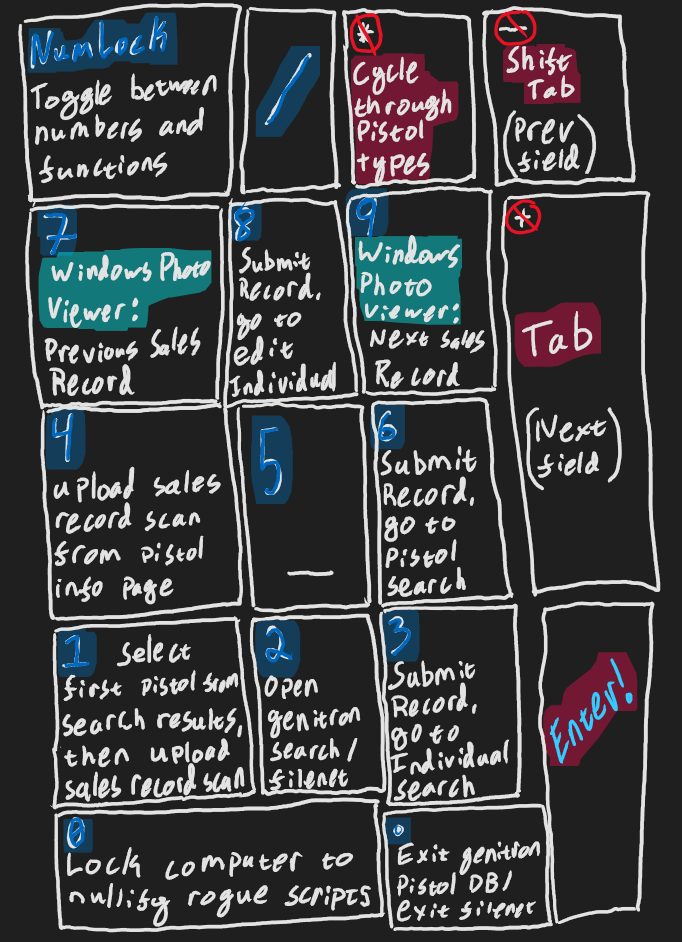 NumLock
Toggle between
numbers and
functions
/
*
Cycle
through
Pistol
types
-
Shift
Tab
(Prev
field)
7
Windows Photo
Viewer:
Previous Sales
Record
8
Submit
Record,
go to
edit
Individual
9
Windows
Photo
Viewer:
Next sales
Record
+
Tab
(Next
field)
4
upload sales
record scan
from pistol
info page
5
6
Submit
Record,
go to
Pistol
search
1 Select
first pistol from
search results,
then upload
sales record scan
2
Open
genitron
search/
filenet
3
Submit
Record,
go to
Individual
search
Enter!
0
Lock computer to
nullify rogue scripts
.
Exit genitron
Pistol DB/
exit filenet